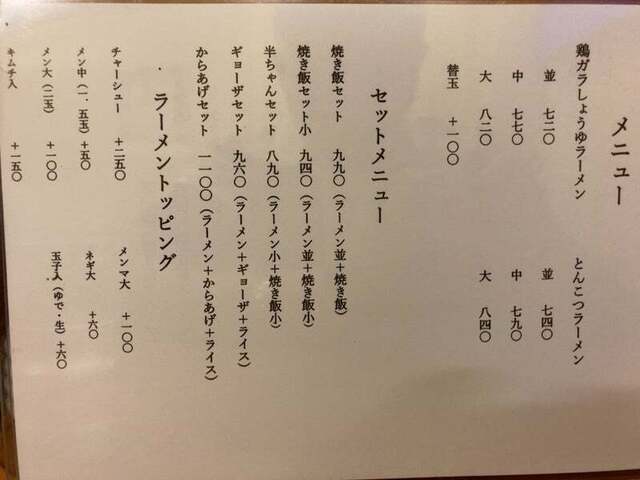 メニュー
鶏ガラしょうゆラーメン
並 七二〇
中 七七〇
大 八二〇
とんこつラーメン
並 七四〇
中 七九〇
大 八四〇
替玉 +一〇〇
セットメニュー
焼き飯セット 九九〇(ラーメン並+焼き飯)
焼き飯セット小 九四〇(ラーメン並+焼き飯小)
半ちゃんセット 八九〇(ラーメン小+焼き飯小)
ギョーザセット 九六〇(ラーメン+ギョーザ+ライス)
からあげセット 一一〇〇(ラーメン+からあげ+ライス)
・ラーメントッピング
チャーシュー +二五〇
メンマ大 +一〇〇
メン中(一.五玉)+五〇
ネギ大 +六〇
メン大(二玉) +一〇〇
玉子入(ゆで・生)+六〇
キムチ入 +一五〇